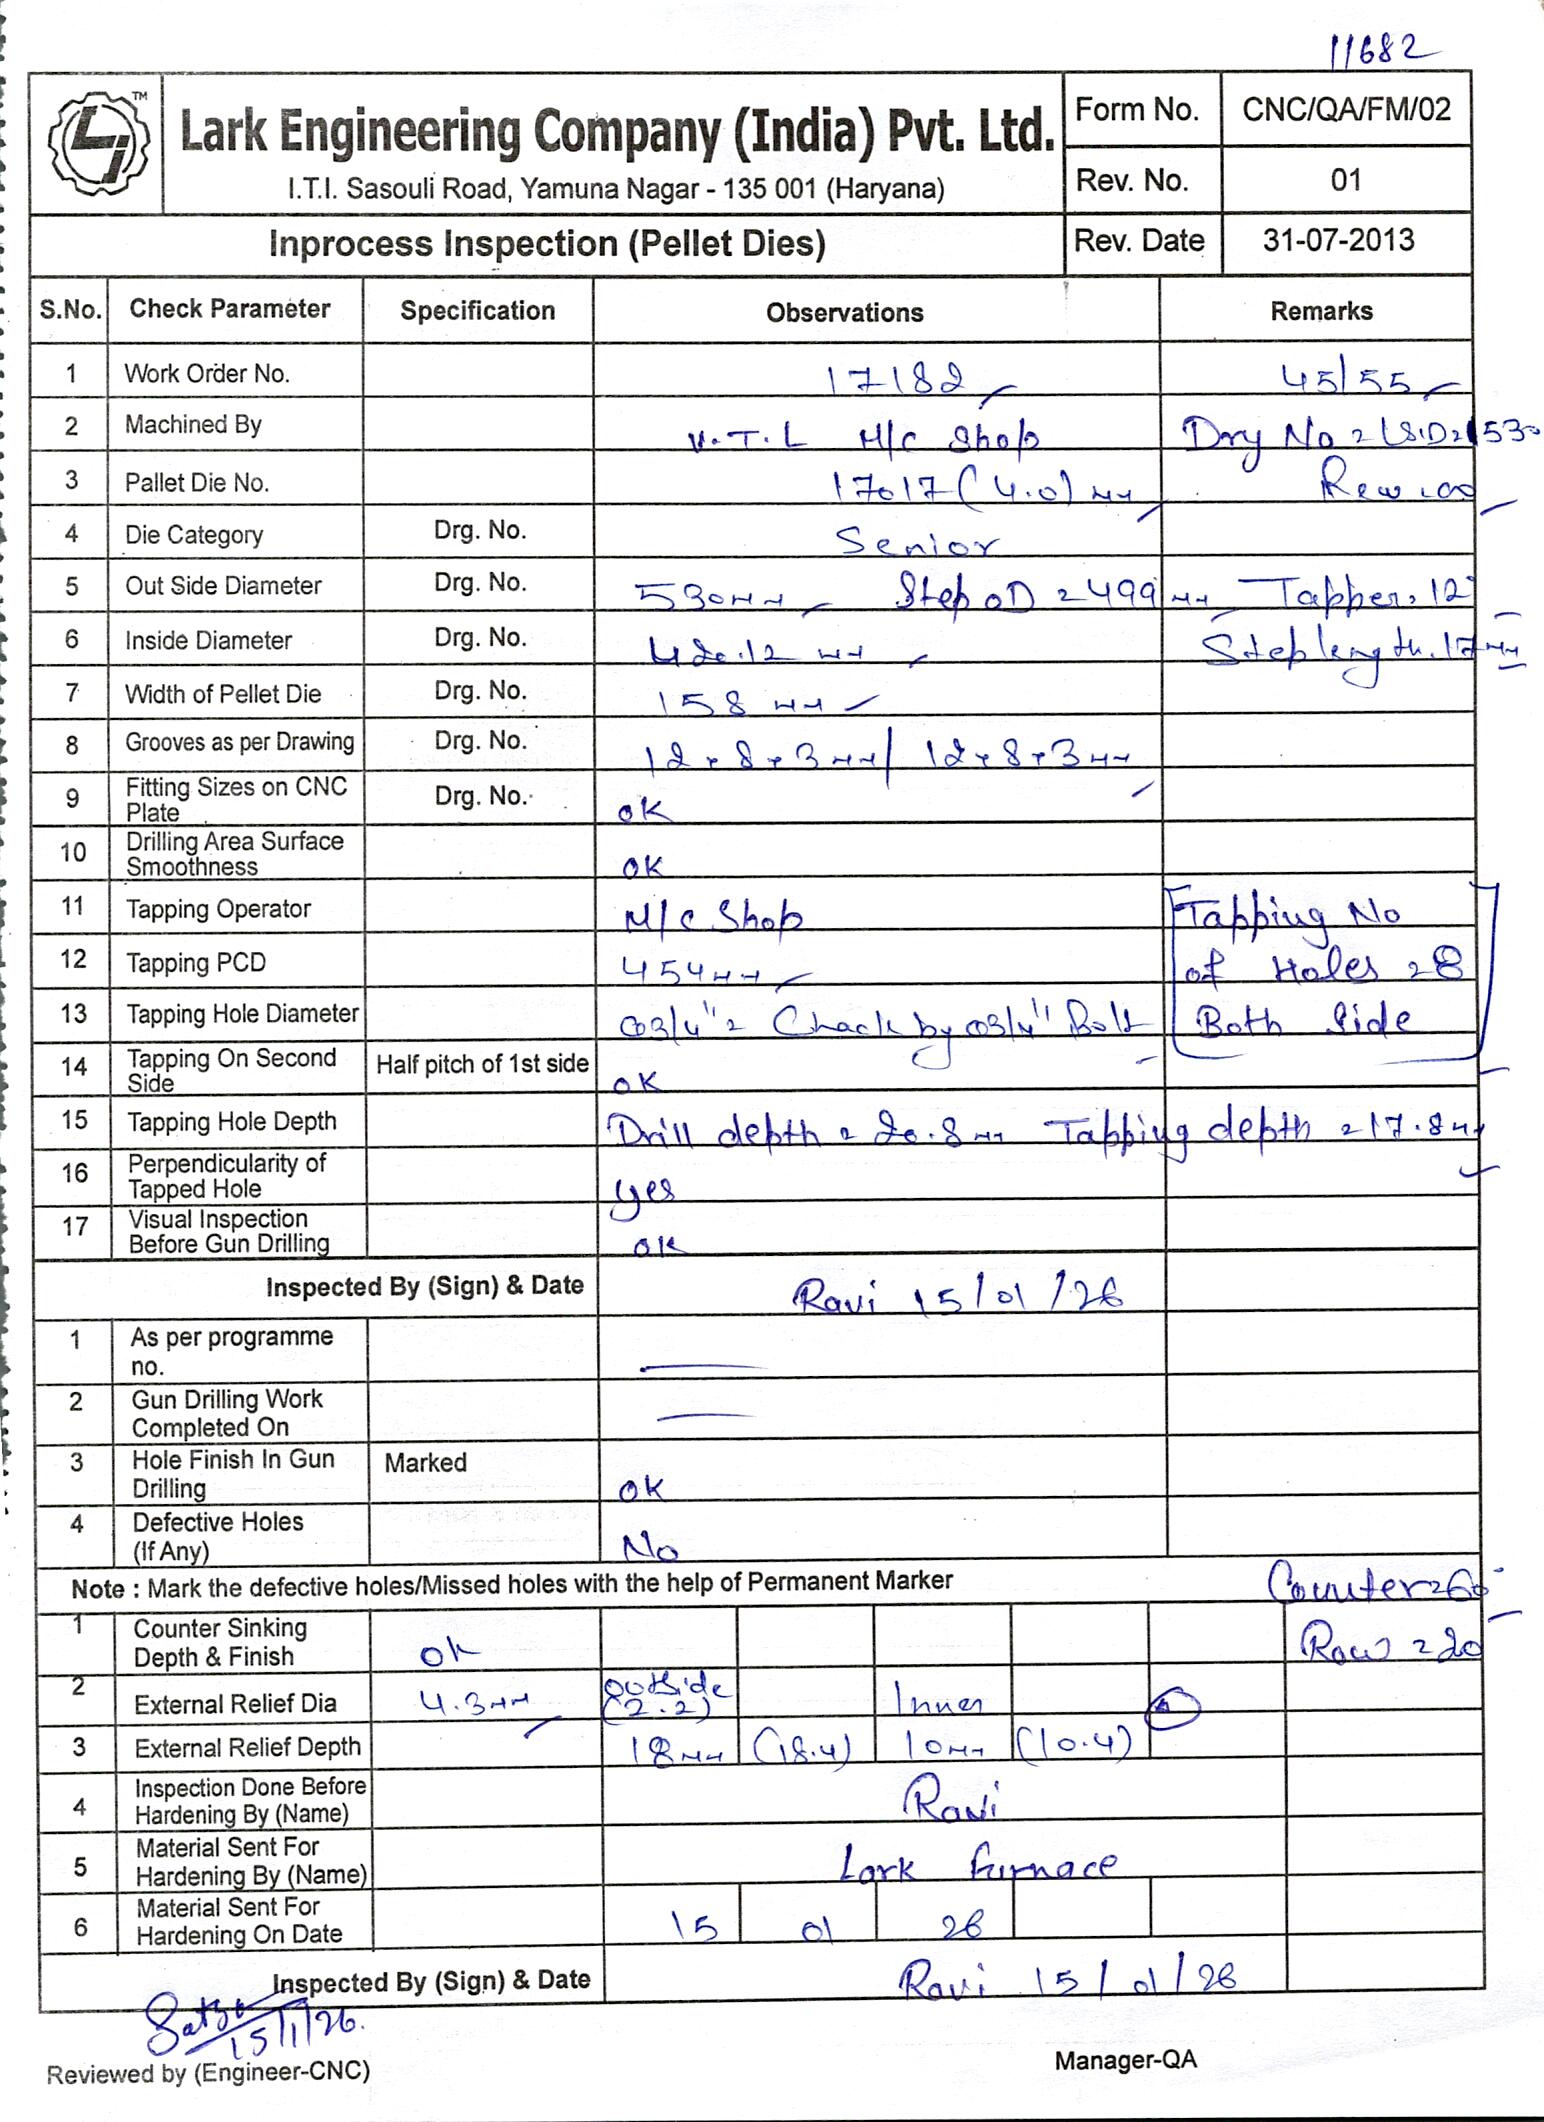 11682
TM
Lark Engineering Company (India) Pvt. Ltd.
I.T.I. Sasouli Road, Yamuna Nagar - 135 001 (Haryana)
Form No. CNC/QA/FM/02
Rev. No. 01
Inprocess Inspection (Pellet Dies)
Rev. Date 31-07-2013
S.No. Check Parameter Specification Observations Remarks
1 Work Order No. 17182 45/55
2 Machined By V.T.L M/c Shop
3 Pallet Die No. 17017 (4.0) mm
4 Die Category Drg. No. Senior
5 Out Side Diameter Drg. No. 530mm Step OD = 499 mm Tapper = 12°
6 Inside Diameter Drg. No. 420.12 mm Step length. 17mm
7 Width of Pellet Die Drg. No. 158 mm
8 Grooves as per Drawing Drg. No. 12 × 8 × 3mm / 12 × 8 × 3mm
9 Fitting Sizes on CNC Plate Drg. No. OK
10 Drilling Area Surface Smoothness OK
11 Tapping Operator M/c Shop Tapping No
12 Tapping PCD 454mm of Holes = 8
13 Tapping Hole Diameter 3/4" = Chack by 3/4" Bolt Both Side
14 Tapping On Second Side Half pitch of 1st side OK
15 Tapping Hole Depth Drill depth = 20.8mm Tapping depth = 17.8mm
16 Perpendicularity of Tapped Hole yes
17 Visual Inspection Before Gun Drilling OK
Inspected By (Sign) & Date Ravi 15/01/26
1 As per programme no.
2 Gun Drilling Work Completed On
3 Hole Finish In Gun Drilling Marked OK
4 Defective Holes (If Any) No
Note : Mark the defective holes/Missed holes with the help of Permanent Marker Counter = 60°
1 Counter Sinking Depth & Finish ok Row = 20
2 External Relief Dia 4.3mm outside (2.2) Inner
3 External Relief Depth 18mm (18.4) 10mm (10.4)
4 Inspection Done Before Hardening By (Name) Ravi
5 Material Sent For Hardening By (Name) Lark furnace
6 Material Sent For Hardening On Date 15 01 26
Inspected By (Sign) & Date Ravi 15/01/26
15/1/26.
Reviewed by (Engineer-CNC) Manager-QA